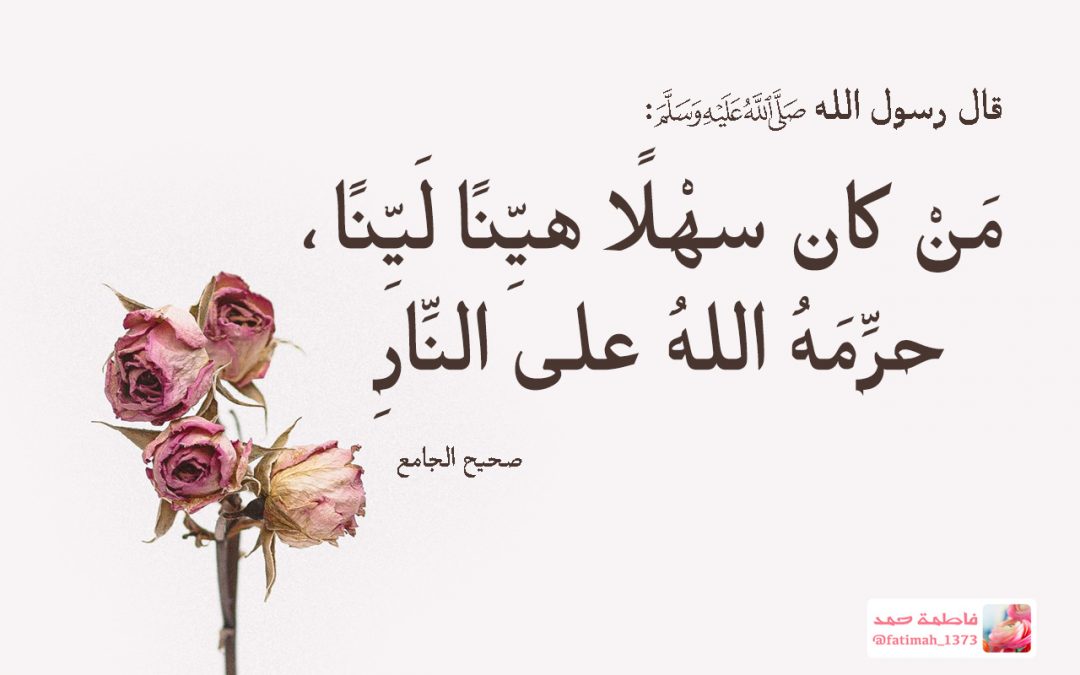 قال رسول الله صَلَّى ٱللَّهُ عَلَيْهِ وَسَلَّمَ:
مَنْ كان سهْلًا هيِّنًا لَيِّنًا،
حرِّمَهُ اللهُ على النَّارِ
صحيح الجامع
فاطمة حمد
@fatimah_1373